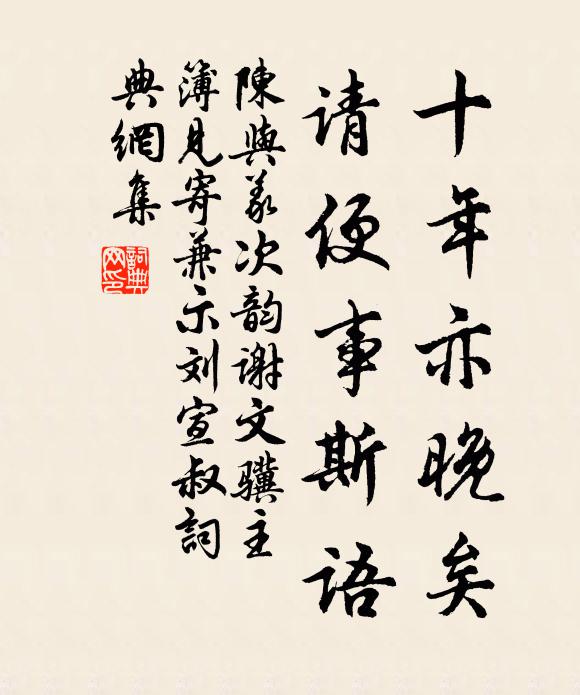 十年亦晚矣
请便事斯语
陳與義次韵謝文骥主
簿見寄兼示刘宣叔詞
典網集
詞典
网印